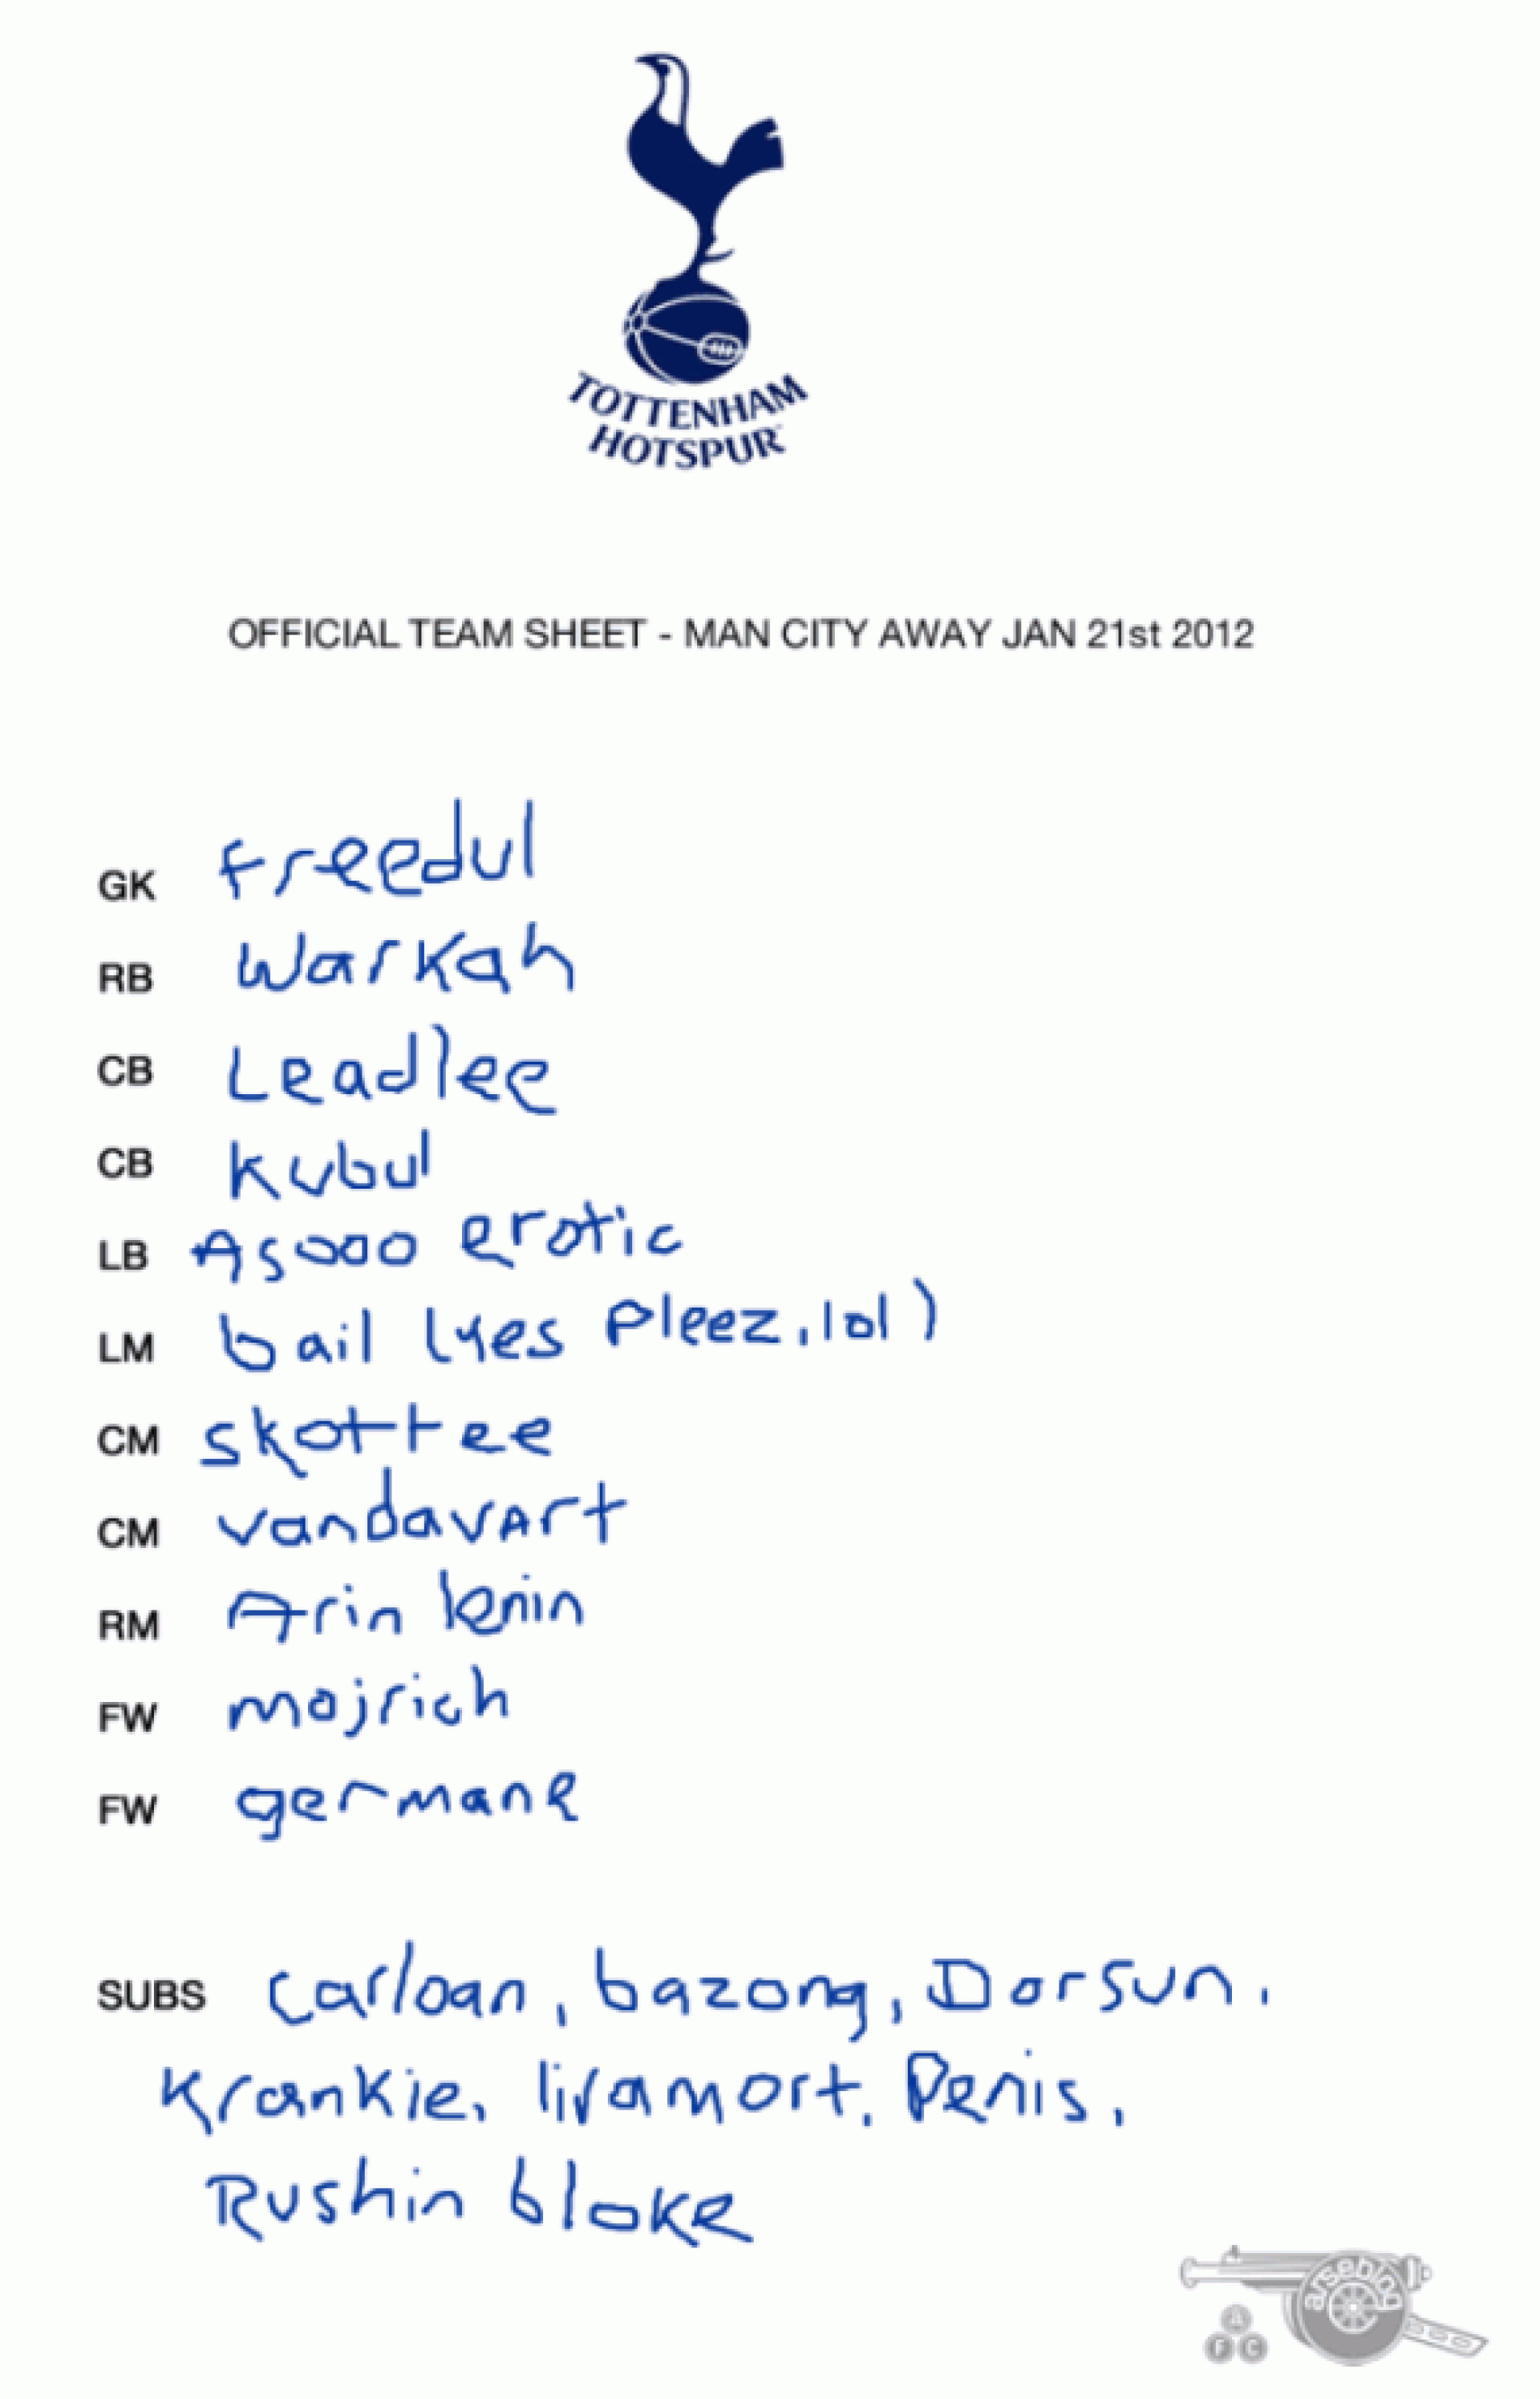 TOTTENHAM
HOTSPUR
OFFICIAL TEAM SHEET - MAN CITY AWAY JAN 21st 2012
GK freedul
RB Warkah
CB Leadlee
CB Kubul
LB Asooo erotic
LM bail (yes pleez, lol)
CM skottee
CM vandavart
RM Arin lenin
FW mojrich
FW germane
SUBS Carloan, bazong, Dorsun,
Krankie, livamort, Penis,
Rushin bloke
arseblog
A
F C